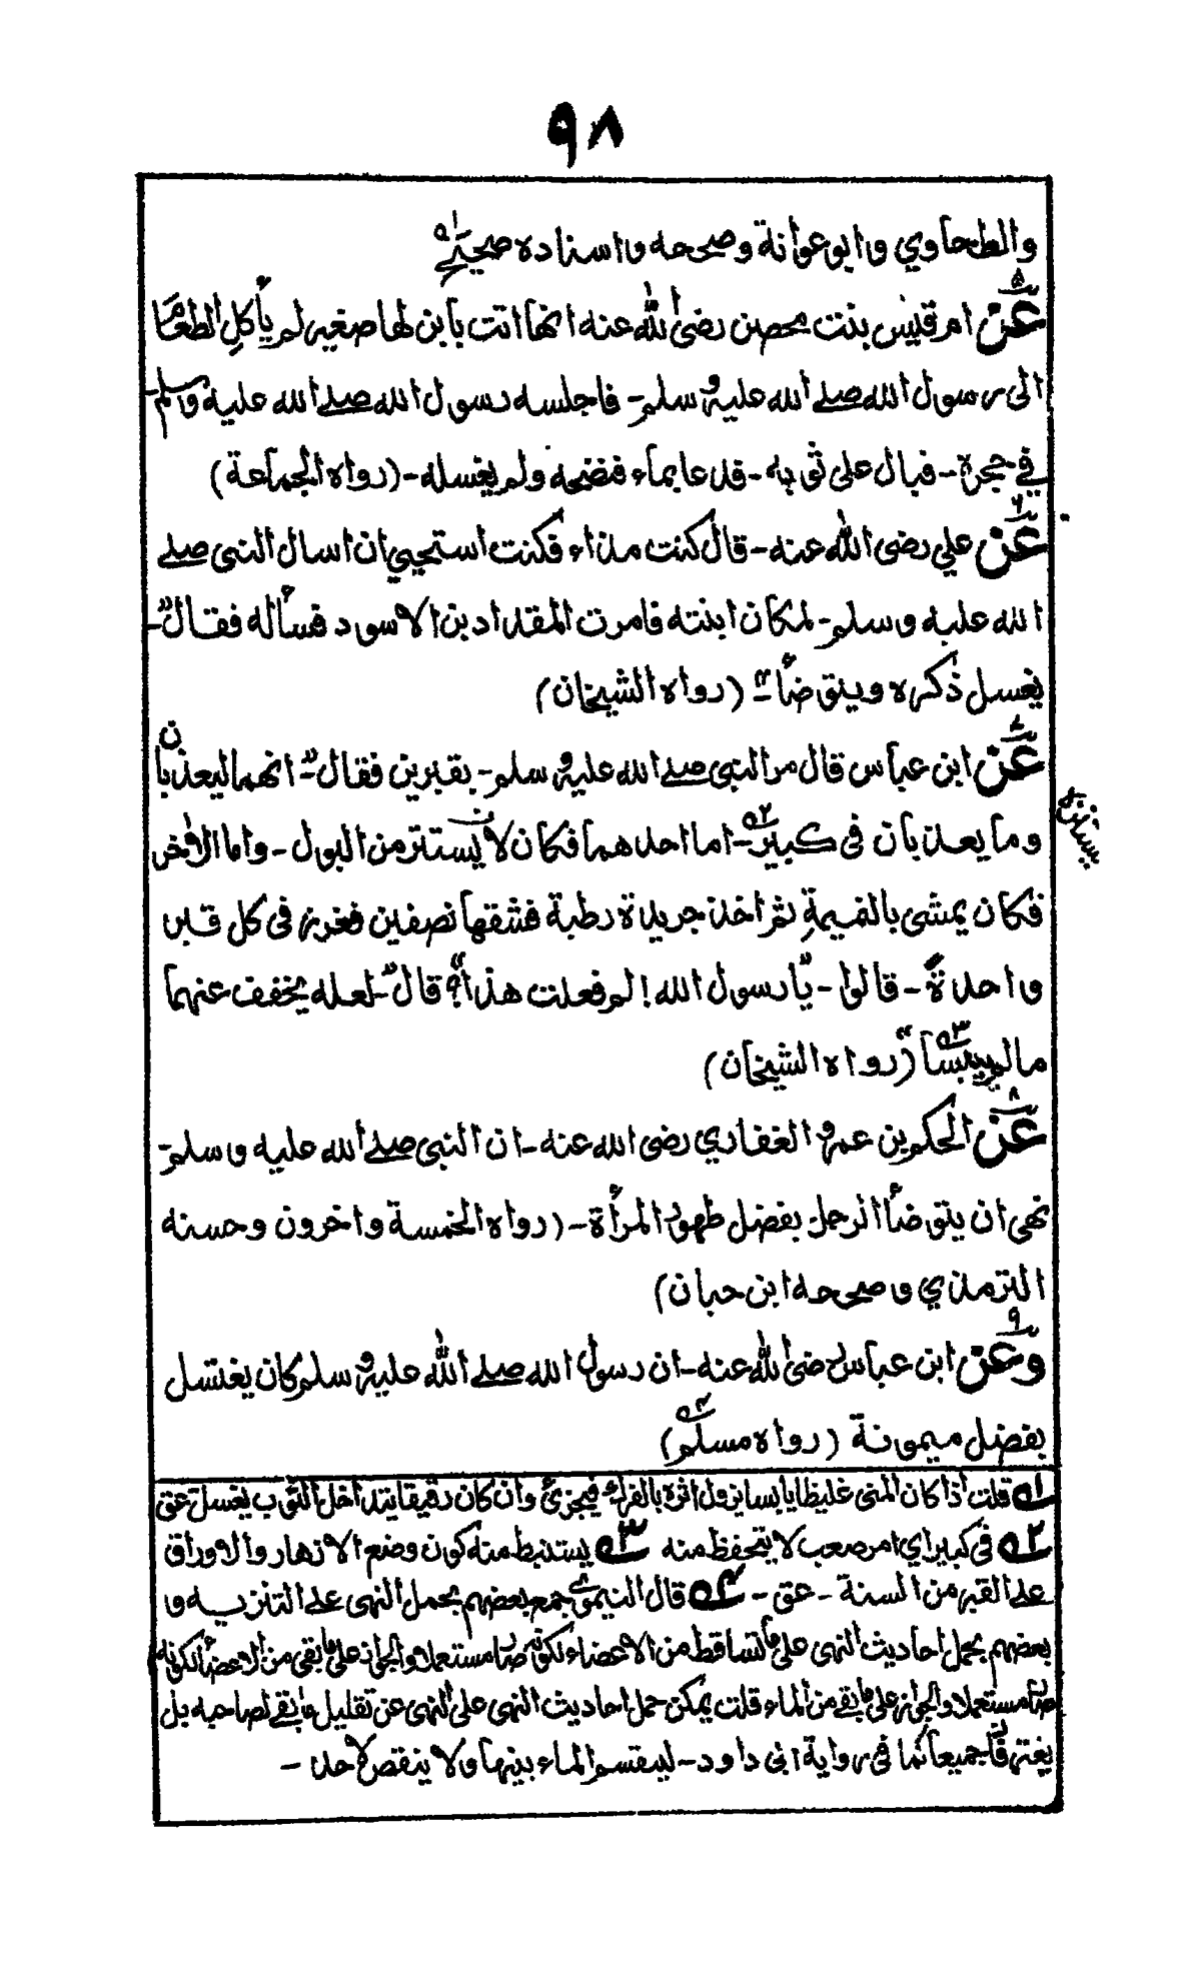 ٩٨
والطحاوي وابو عوانة وصححه واسناده صحيح لـه١
عن٥ ام قيس بنت محصن رضى الله عنه انها اتت بابن لها صغير لم يأكل الطعام
الى رسول الله صلى الله عليه وسلم۔ فاجلسه رسول الله صلى الله عليه وسلم
في حجره۔ فبال على ثوبه۔ فدعا بماء فنضحه ولم يغسله۔ (رواه الجماعة)
عن٦ علي رضى الله عنه۔ قال كنت مذاء فكنت استحيي ان اسال النبى صلى
الله عليه وسلم۔ لمكان ابنته فامرت المقداد بن الاسود فسأله فقال"۔
يغسل ذكره ويتوضأ۔" (رواه الشيخان)
عن٧ ابن عباس قال مر النبى صلى الله عليه وسلم۔ بقبرين فقال"۔ انهما ليعذبان
وما يعذبان فى كبير٢۔ اما احدهما فكان لا يستتر من البول۔ واما الاخر
يستنزه
فكان يمشى بالنميمة ثم اخذ جريدة رطبة فشقها نصفين فغرز فى كل قبر
واحدة"۔ قالوا۔ "يا رسول الله! لم فعلت هذا؟" قال"۔ لعله يخفف عنهما
ما لم ييبسا٣" (رواه الشيخان)
عن٨ الحكم بن عمرو الغفاري رضى الله عنه۔ ان النبى صلى الله عليه وسلم۔
نهى ان يتوضأ الرجل بفضل طهور المرأة۔ (رواه الخمسة واخرون وحسنه
الترمذي وصححه ابن حبان)
وعن٩ ابن عباس رضى الله عنه۔ ان رسول الله صلى الله عليه وسلم كان يغتسل
بفضل ميمونة (رواه مسلم)٤
١ قلت اذا كان المنى غليظا يابسا يزول اثره بالفرك فيجزئ وان كان رقيقا يتداخل الثوب يغسل۔ عق
٢ فى كبير اي امر صعب لا يتحفظ منه ٣ يستنبط منه كون وضع الازهار والاوراق
على القبر من السنة۔ عق۔ ٤ قال النيموى جمع بعضهم بحمل النهى على التنزيه و
بعضهم بحمل احاديث النهى على ما تساقط من الاعضاء لكونه صار مستعملا والجواز على ما بقى من الاعضاء لكونه
صار مستعملا والجواز على ما بقى من الماء قلت يمكن حمل احاديث النهى على النهى عن تقليل ما بقى لصاحبه بل
يغترفا جميعا كما فى رواية ابى داود۔ ليقسم الماء بينها ولا ينقص لاحد۔